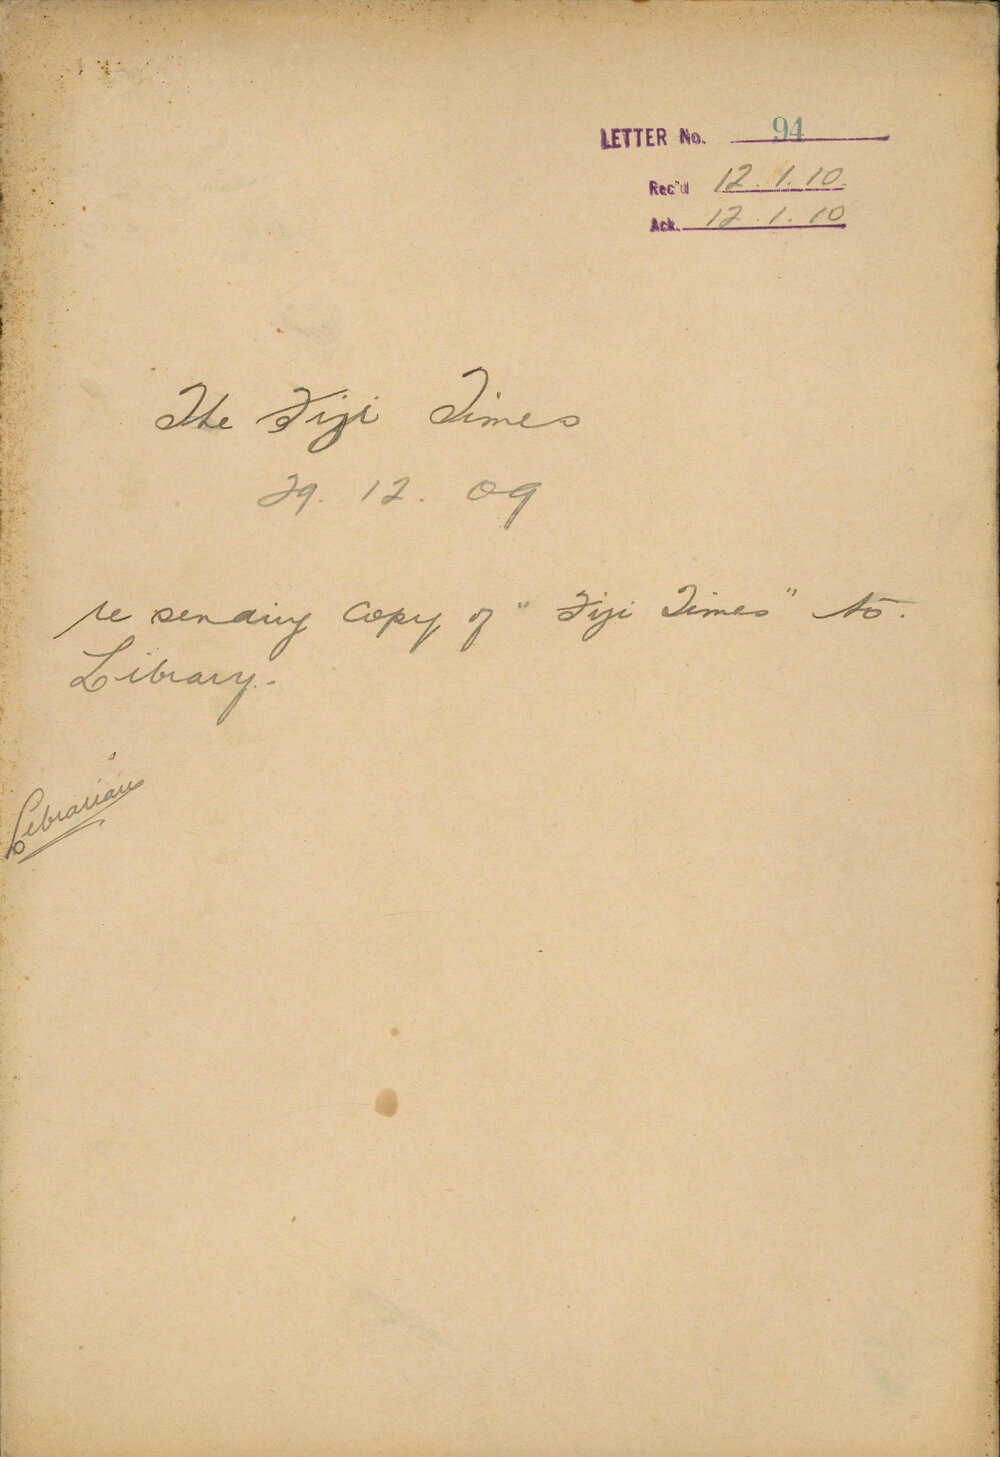 LETTER No. 94
Rec'd 12.1.10.
Ack. 12.1.10
The Fiji Times
29. 12. 09
re sending copy of "Fiji Times" to.
Library.
Librarian